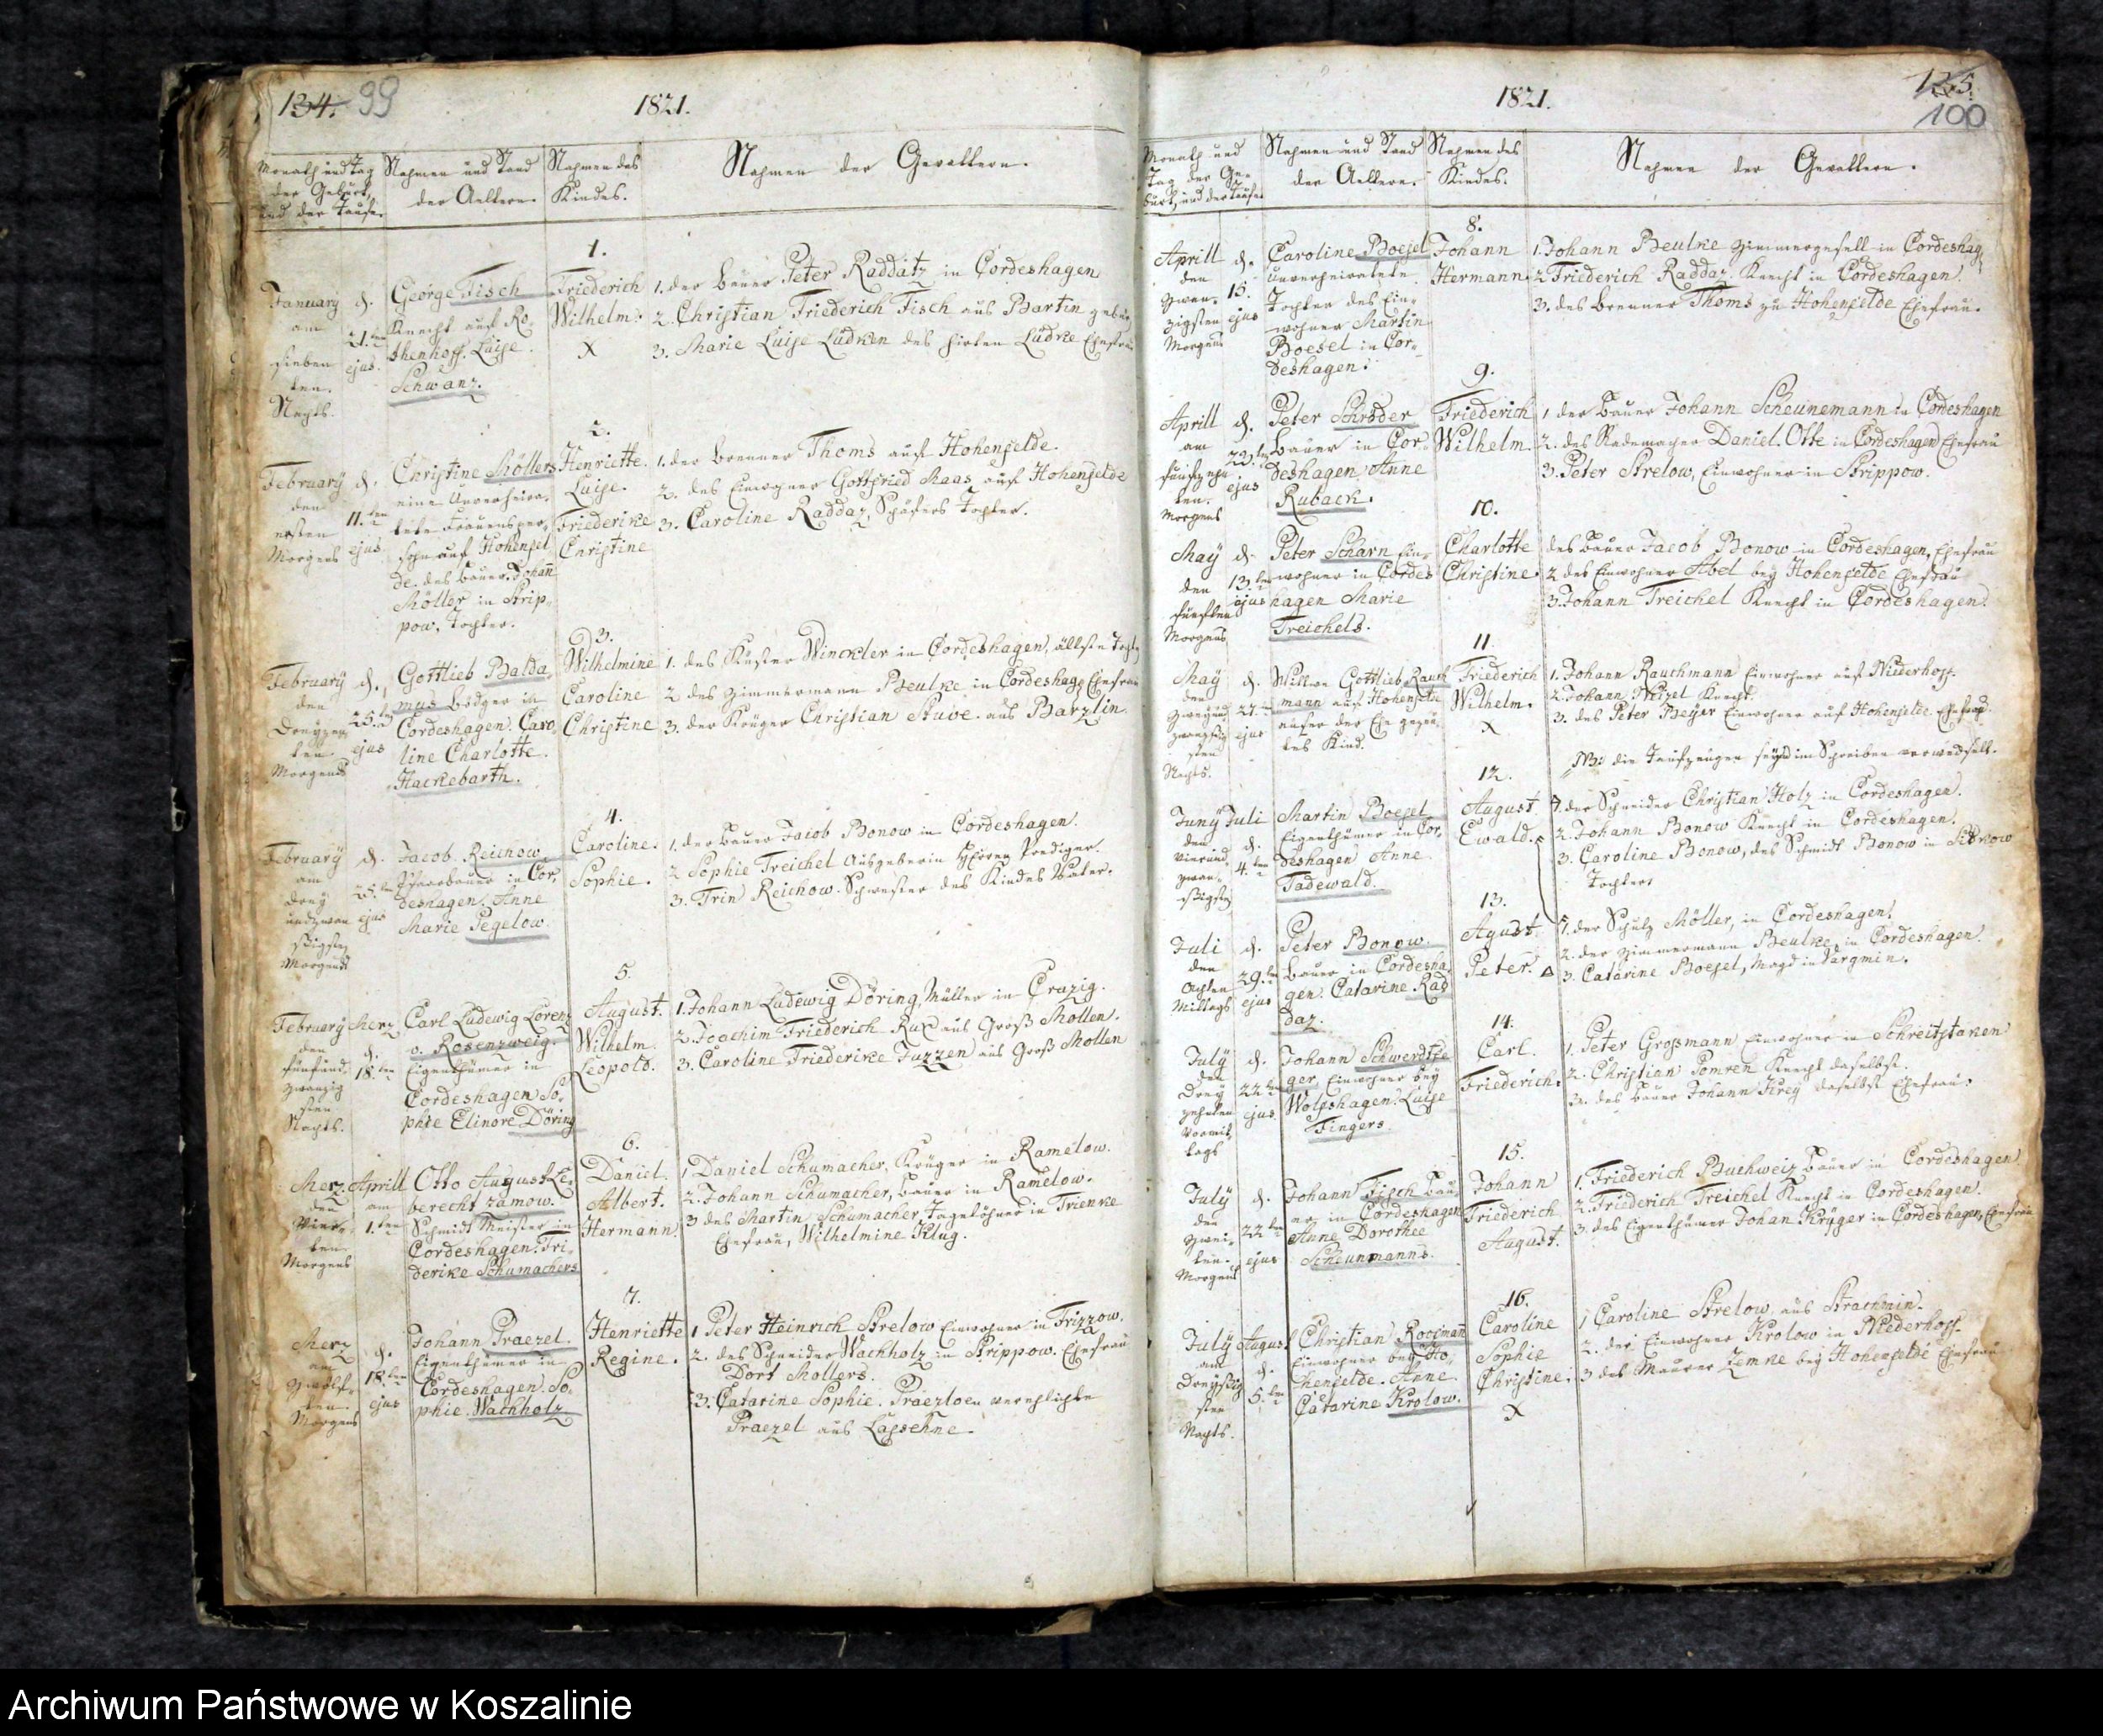 134. 99
1821.
Monath und Tag
der Geburt,
und der Taufe.
Nahmen und Stand
der Aeltern.
Nahmen des
Kindes.
Nahmen der Gevattern.
1.
January
am
sieben
ten.
Nachts.
d.
21.ten
ejus.
George Fisch
Knecht auf Ro-
thenhoff. Luise
Schwanz.
Friederich
Wilhelm.
X
1. der Bauer Peter Raddatz in Cordeshagen
2. Christian Friederich Fisch aus Bartin
3. Marie Luise Lüdken des Hirten Lüdke Ehefrau
2.
February
den
ersten
Morgens
d.
11.ten
ejus
Christine Möllers
eine Unverheira-
tete Frauensper-
sohn auf Hohenfel
de. des Bauer Johann
Möller in Strip-
pow, Tochter.
Henriette.
Luise.
Friederike
Christine
1. der Brenner Thoms auf Hohenfelde.
2. des Einwohner Gottfried Maas auf Hohenfelde
3. Caroline Raddaz, Schäfers Tochter.
3.
February
den
Dreyzen
ten.
Morgends
d.
25.ten
ejus
Gottlieb Balda-
mus Bödger in
Cordeshagen. Caro-
line Charlotte.
Hackebarth.
Wilhelmine
Caroline
Christine
1. des Küster Winckler in Cordeshagen, ältste Tochter
2 des Zimmermann Beulke in Cordeshag. Ehefrau
3. der Krüger Christian Stuve aus Barzlin.
4.
February
am
drey
undzwan
zigsten
Morgends
d.
25.ten
ejus
Jacob Reichow
Pfarrbauer in Cor-
deshagen. Anne
Marie Pegelow.
Caroline.
Sophie.
1. der Bauer Jacob Bonow in Cordeshagen.
2 Sophie Treichel Ausgeberin Herrn Prediger.
3. Trin Reichow. Schwester des Kindes Vater.
5.
February
den
fünfund-
zwanzig
sten
Nachts.
Merz
d.
18.ten
Carl Ludewig Lorenz
v. Rosenzweig.
Eigenthümer in
Cordeshagen So-
phie Elinore Döring
August.
Wilhelm.
Leopold.
1. Johann Ludewig Döring, Müller in Crazig.
2. Joachim Friederich Rux aus Groß Mollen.
3. Caroline Friederike Juzzen aus Groß Mollen
6.
Merz
den
Vier-
ten.
Morgens
Aprill
am
1.ten
Otto August Le-
berecht Ramow.
Schmidt Meister in
Cordeshagen. Fri-
derike Schumachers
Daniel.
Albert.
Hermann.
1 Daniel Schumacher, Krüger in Ramelow.
2. Johann Schumacher, Bauer in Ramelow.
3 des Martin Schumacher Tagelöhner in Trienke
Ehefrau, Wilhelmine Klug.
7.
Merz
am
Zwölf-
ten.
Morgens
d.
18.ten
ejus
Johann Praezel.
Eigenthümer in
Cordeshagen. So-
phie. Wachholz
Henriette
Regine.
1 Peter Heinrich Strelow Einwohner in Trizzow.
2. des Schneider Wachholz in Strippow. Ehefrau
Dort Mollers.
3. Catarine Sophie. Praezloen verehlichte
Praezel aus Lassehne.
1821.
135.
100
Monath und
Tag der Ge-
burt, und der Taufe.
Nahmen und Stand
der Aeltern.
Nahmen des
Kindes.
Nahmen der Gevattern.
8.
Aprill
den
zwan-
zigsten
Morgens
d.
15.
ejus
Caroline Boesel
unverheiratete
Tochter des Ein-
wohner Martin
Boesel in Cor-
deshagen.
Johann
Hermann.
1. Johann Beulke Zimmergesell in Cordeshag.
2 Friederich Raddaz. Knecht in Cordeshagen.
3. des Brenner Thoms zu Hohenfelde Ehefrau.
9.
Aprill
am
fünfzehn
ten.
Morgens
d.
23.ten
ejus
Peter Schröder
Bauer in Cor-
deshagen Anne
Ruback.
Friederich
Wilhelm.
1 der Bauer Johann Scheunemann in Cordeshagen
2. des Rademacher Daniel. Otte in Cordeshagen Ehefrau
3. Peter Strelow, Einwohner in Strippow.
10.
May
den
fünften
Morgens
d.
13.ten
ejus
Peter Scharn Ein-
wohner in Cordes
hagen Marie
Treichels.
Charlotte
Christine.
des Bauer Jacob Bonow in Cordeshagen, Ehefrau
2 des Einwohner Abel bey Hohenfelde Ehefrau
3. Johann Treichel Knecht in Cordeshagen.
11.
May
den
zweyund
zwanzig
sten
Nachts.
d.
27.ten
ejus
Wittwe Gottlieb Rauch
mann auf Hohenfelde
außer der Ehe gezeu-
tes Kind.
Friederich
Wilhelm.
X
1. Johann Rauchmann Einwohner auf Niederhoff.
2. Johann Wetzel Knecht.
3. des Peter Beyer Einwohner auf Hohenfelde Ehefrau.
NB: die Taufzeugen seynd im Schreiben verwechselt.
12.
Juny
den
Vierund
zwan-
zigsten
Juli
d.
4.ten
Martin Boesel
Eigenthümer in Cor-
deshagen Anne
Tadewald.
August
Ewald.
1. der Schneider Christian Holz in Cordeshagen.
2. Johann Bonow Knecht in Cordeshagen.
3. Caroline Bonow, des Schmidt Bonow in
Tochter.
13.
Juli
den
Achten
Mittags
d.
29.ten
ejus
Peter Bonow.
Bauer in Cordesha-
gen. Catarine Rad
daz.
Agust
Peter.
1. der Schulz Möller, in Cordeshagen.
2. der Zimmermann Beulke in Cordeshagen.
3. Catarine Boesel, Magd in Vargmin.
14.
July
den
Drey
zehnten
Vormit-
tags
d.
22ten
ejus
Johann Schwerdtfe-
ger, Einwohner bey
Wolfshagen. Luise
Fingers.
Carl.
Friederich.
1. Peter Großmann Einwohner in Schreitstaken
2. Christian Pomren Knecht daselbst.
3. des Bauer Johann Krey daselbst Ehefrau.
15.
July
den
Zwei-
ten.
Morgens
d.
22ten
ejus
Johann Fisch Bau-
er in Cordeshagen
Anne Dorothee
Scheunmanns.
Johann
Friederich
August.
1. Friederich Buchweiz Bauer in Cordeshagen
2. Friederich Treichel Knecht in Cordeshagen.
3. des Eigenthümer Johan Krüger in Cordeshagen, Ehefrau
16.
July
am
Dreyßig
sten
Nachts.
August
d.
5.ten
Christian Roggmann
Einwohner bey Ho-
henfelde. Anne
Catarine Krolow.
Caroline
Sophie
Christine.
X
1 Caroline Strelow aus Strachmin.
2. der Einwohner Krolow in Niederhoff.
3 des Maurer Zemke bey Hohenfelde Ehefrau
Archiwum Państwowe w Koszalinie